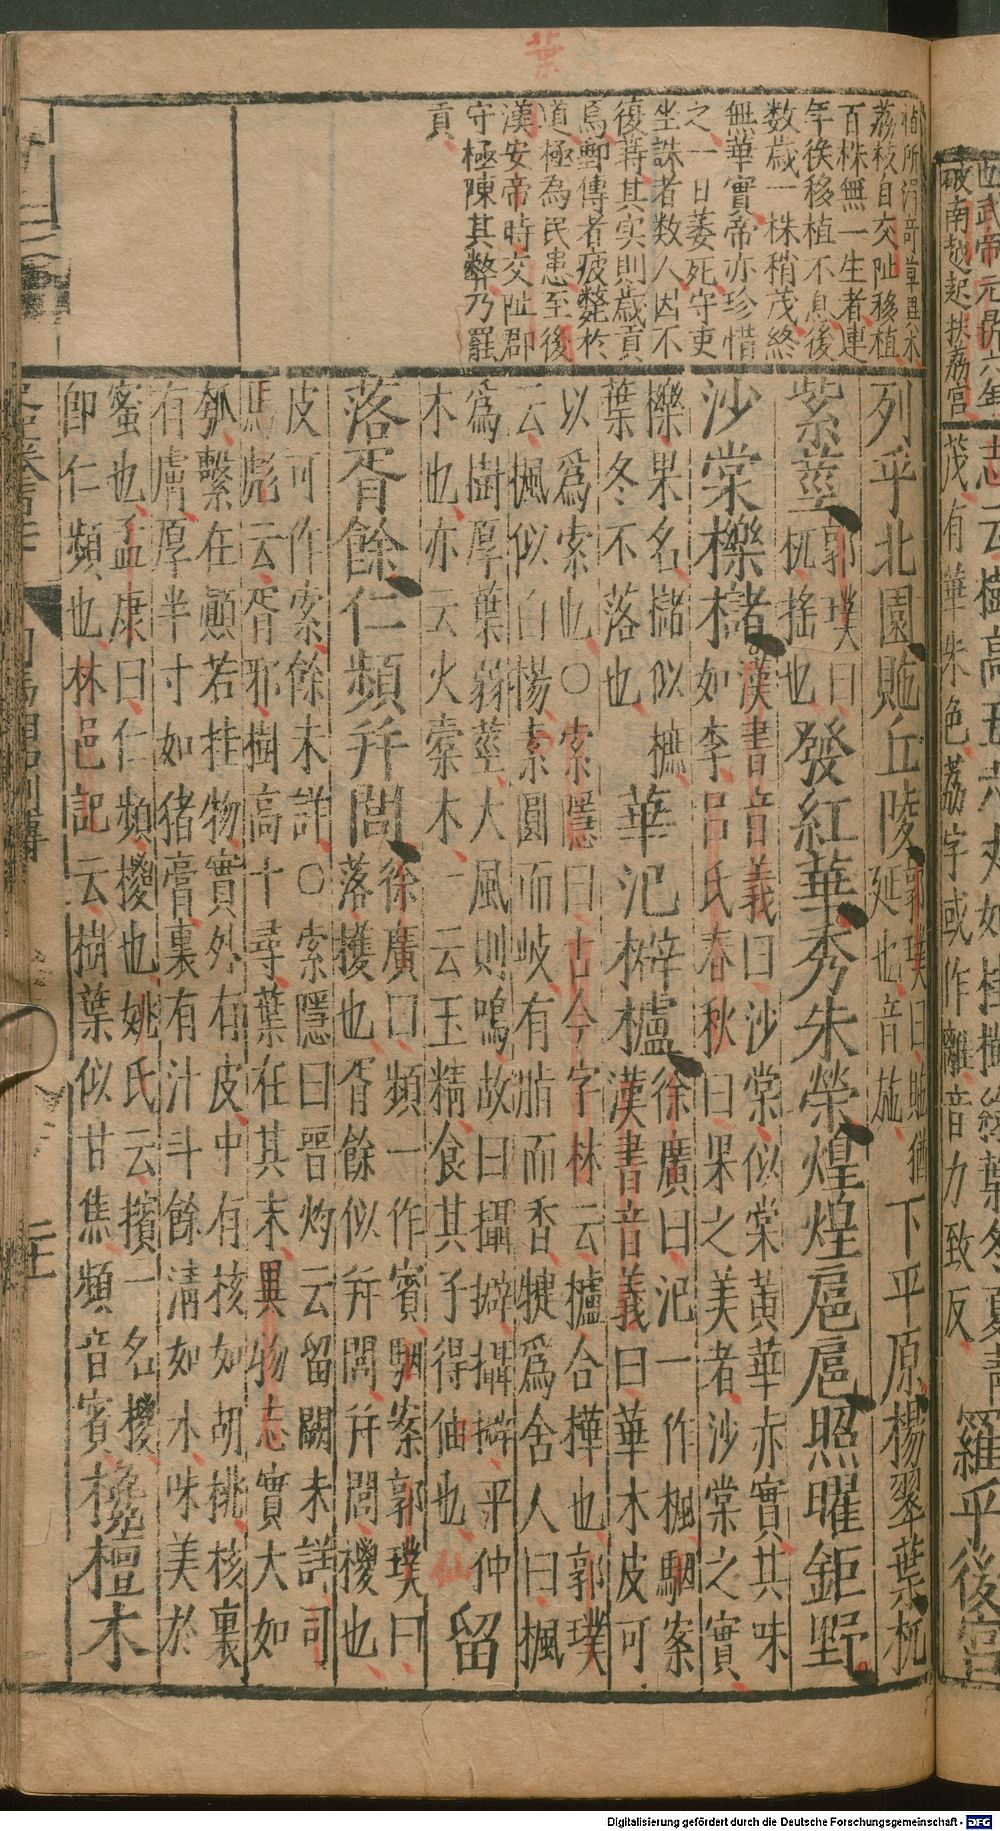 葉
植所得奇草異木
荔枝自交趾移植
百株無一生者連
年後移植不息後
数歳一株稍茂終
無華實帝亦珍惜
之一日萎死守吏
坐誅者数人因不
復蒔其实則歳貢
焉郵傳者疲斃於
道極為民患至後
漢安帝時交趾郡
守極陳其弊乃罷
貢
列乎北園貤丘陵
郭璞曰貤猶
延也音施
下平原楊翠葉杌
紫莖
郭璞曰
杌揺也
發紅華秀朱榮煌煌扈扈照曜鉅野
沙棠櫟櫧
漢書音義曰沙棠似棠黃華亦實其味
如李呂氏春秋曰果之美者沙棠之實
櫟果名櫧似樜
葉冬不落也
華汜枰櫨
徐廣曰汜一作楓駰案
漢書音義曰華木皮可
以爲索也○索隱曰古今字林云櫨合樺也郭璞
云楓似白楊素圓而岐有脂而香犍爲舍人曰楓
爲樹厚葉弱莖大風則鳴故曰攝攝平仲
木也亦云火槖木一云玉精食其子得仙也
仙
留
落胥餘仁頻幷閭
徐廣曰頻一作賓駰案郭璞曰
落檴也胥餘似幷閭幷閭椶也
皮可作索餘未詳○索隱曰晋灼云留闕未詳司
馬彪云胥邪樹高十尋葉在其末異物志實大如
瓠繫在顚若挂物實外有皮中有核如胡桃核裏
有膚厚半寸如猪膏裏有汁斗餘淸如水味美於
蜜也孟康曰仁頻椶也姚氏云檳一名椶
卽仁頻也林邑記云樹葉似甘焦頻音賓
欃檀木
世武帝元鼎六年
破南越起扶荔宫
志云樹高五六丈如桂樹綠葉冬夏靑
茂有華朱色荔字或作離音力致反
羅乎後宫
Digitalisierung gefördert durch die Deutsche Forschungsgemeinschaft - DFG